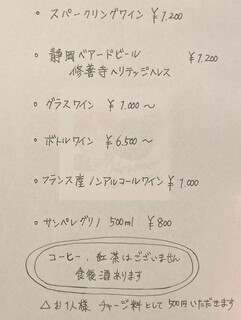 • スパークリングワイン ¥1.200
• 静岡ベアードビール ¥1.200
修善寺ヘリテッジヘレス
• グラスワイン ¥1.000～
• ボトルワイン ¥6.500～
• フランス産ノンアルコールワイン ¥1.000
• サンペレグリノ 500ml ¥800
コーヒー、紅茶はございません
食後酒あります
△お1人様 チャージ料として500円いただきます